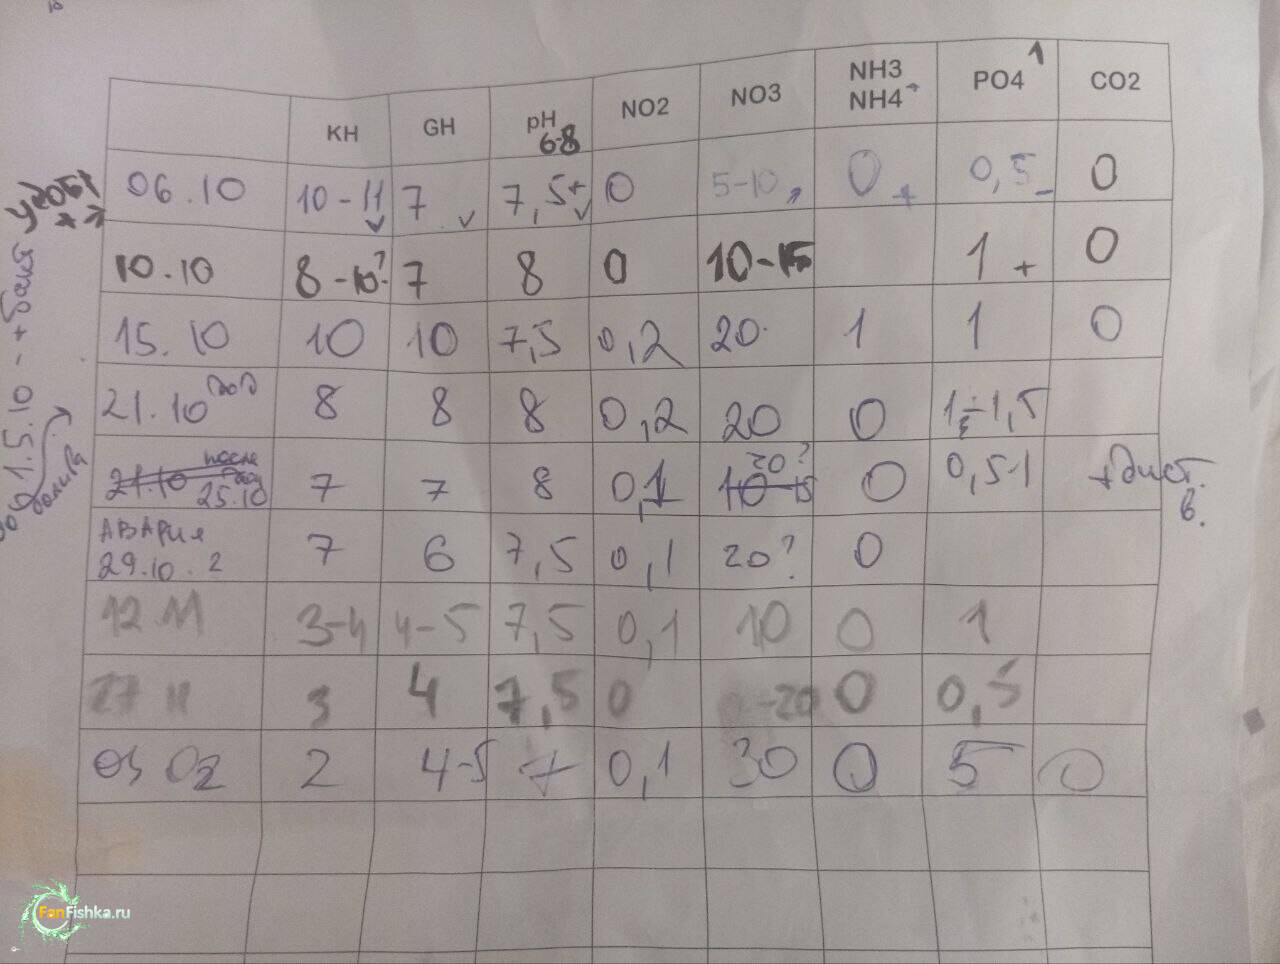 KH GH pH NO2 NO3 NH3 NH4+ PO4 1 CO2
6-8
06.10 10-11 7 7,5+ 0 5-10 0 + 0,5- 0
10.10 8-10? 7 8 0 10-15 1 + 0
15.10 10 10 7,5 0,2 20 1 1 0
21.10 8 8 8 0,2 20 0 1÷1,5
21.10 после
25.10 7 7 8 0,1 10-15 20? 0 0,5-1 +дист.
в.
АВАРИЯ
29.10.2 7 6 7,5 0,1 20? 0
12.11 3-4 4-5 7,5 0,1 10 0 1
27 11 3 4 7,5 0 -20 0 0,5
03 02 2 4-5 7 0,1 30 0 5 0
15.10 - + бакт
FanFishka.ru